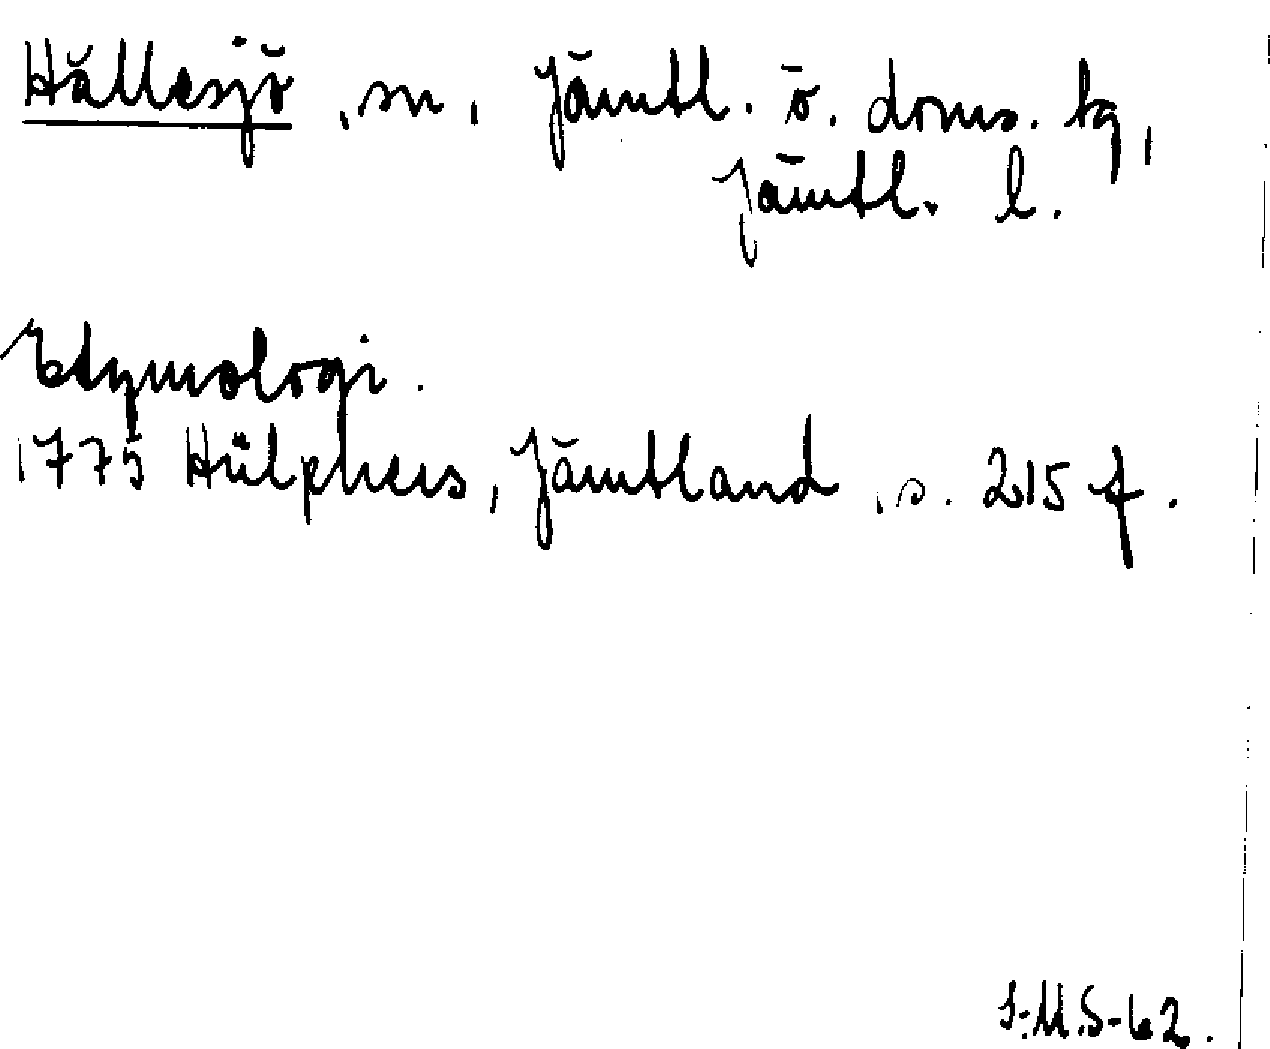 Hällesjö, sn, Jämtl. ö. doms. tg,
Jämtl. l.
Etymologi.
1775 Hülphers, Jämtland, s. 215 f.
I-M.S-62.